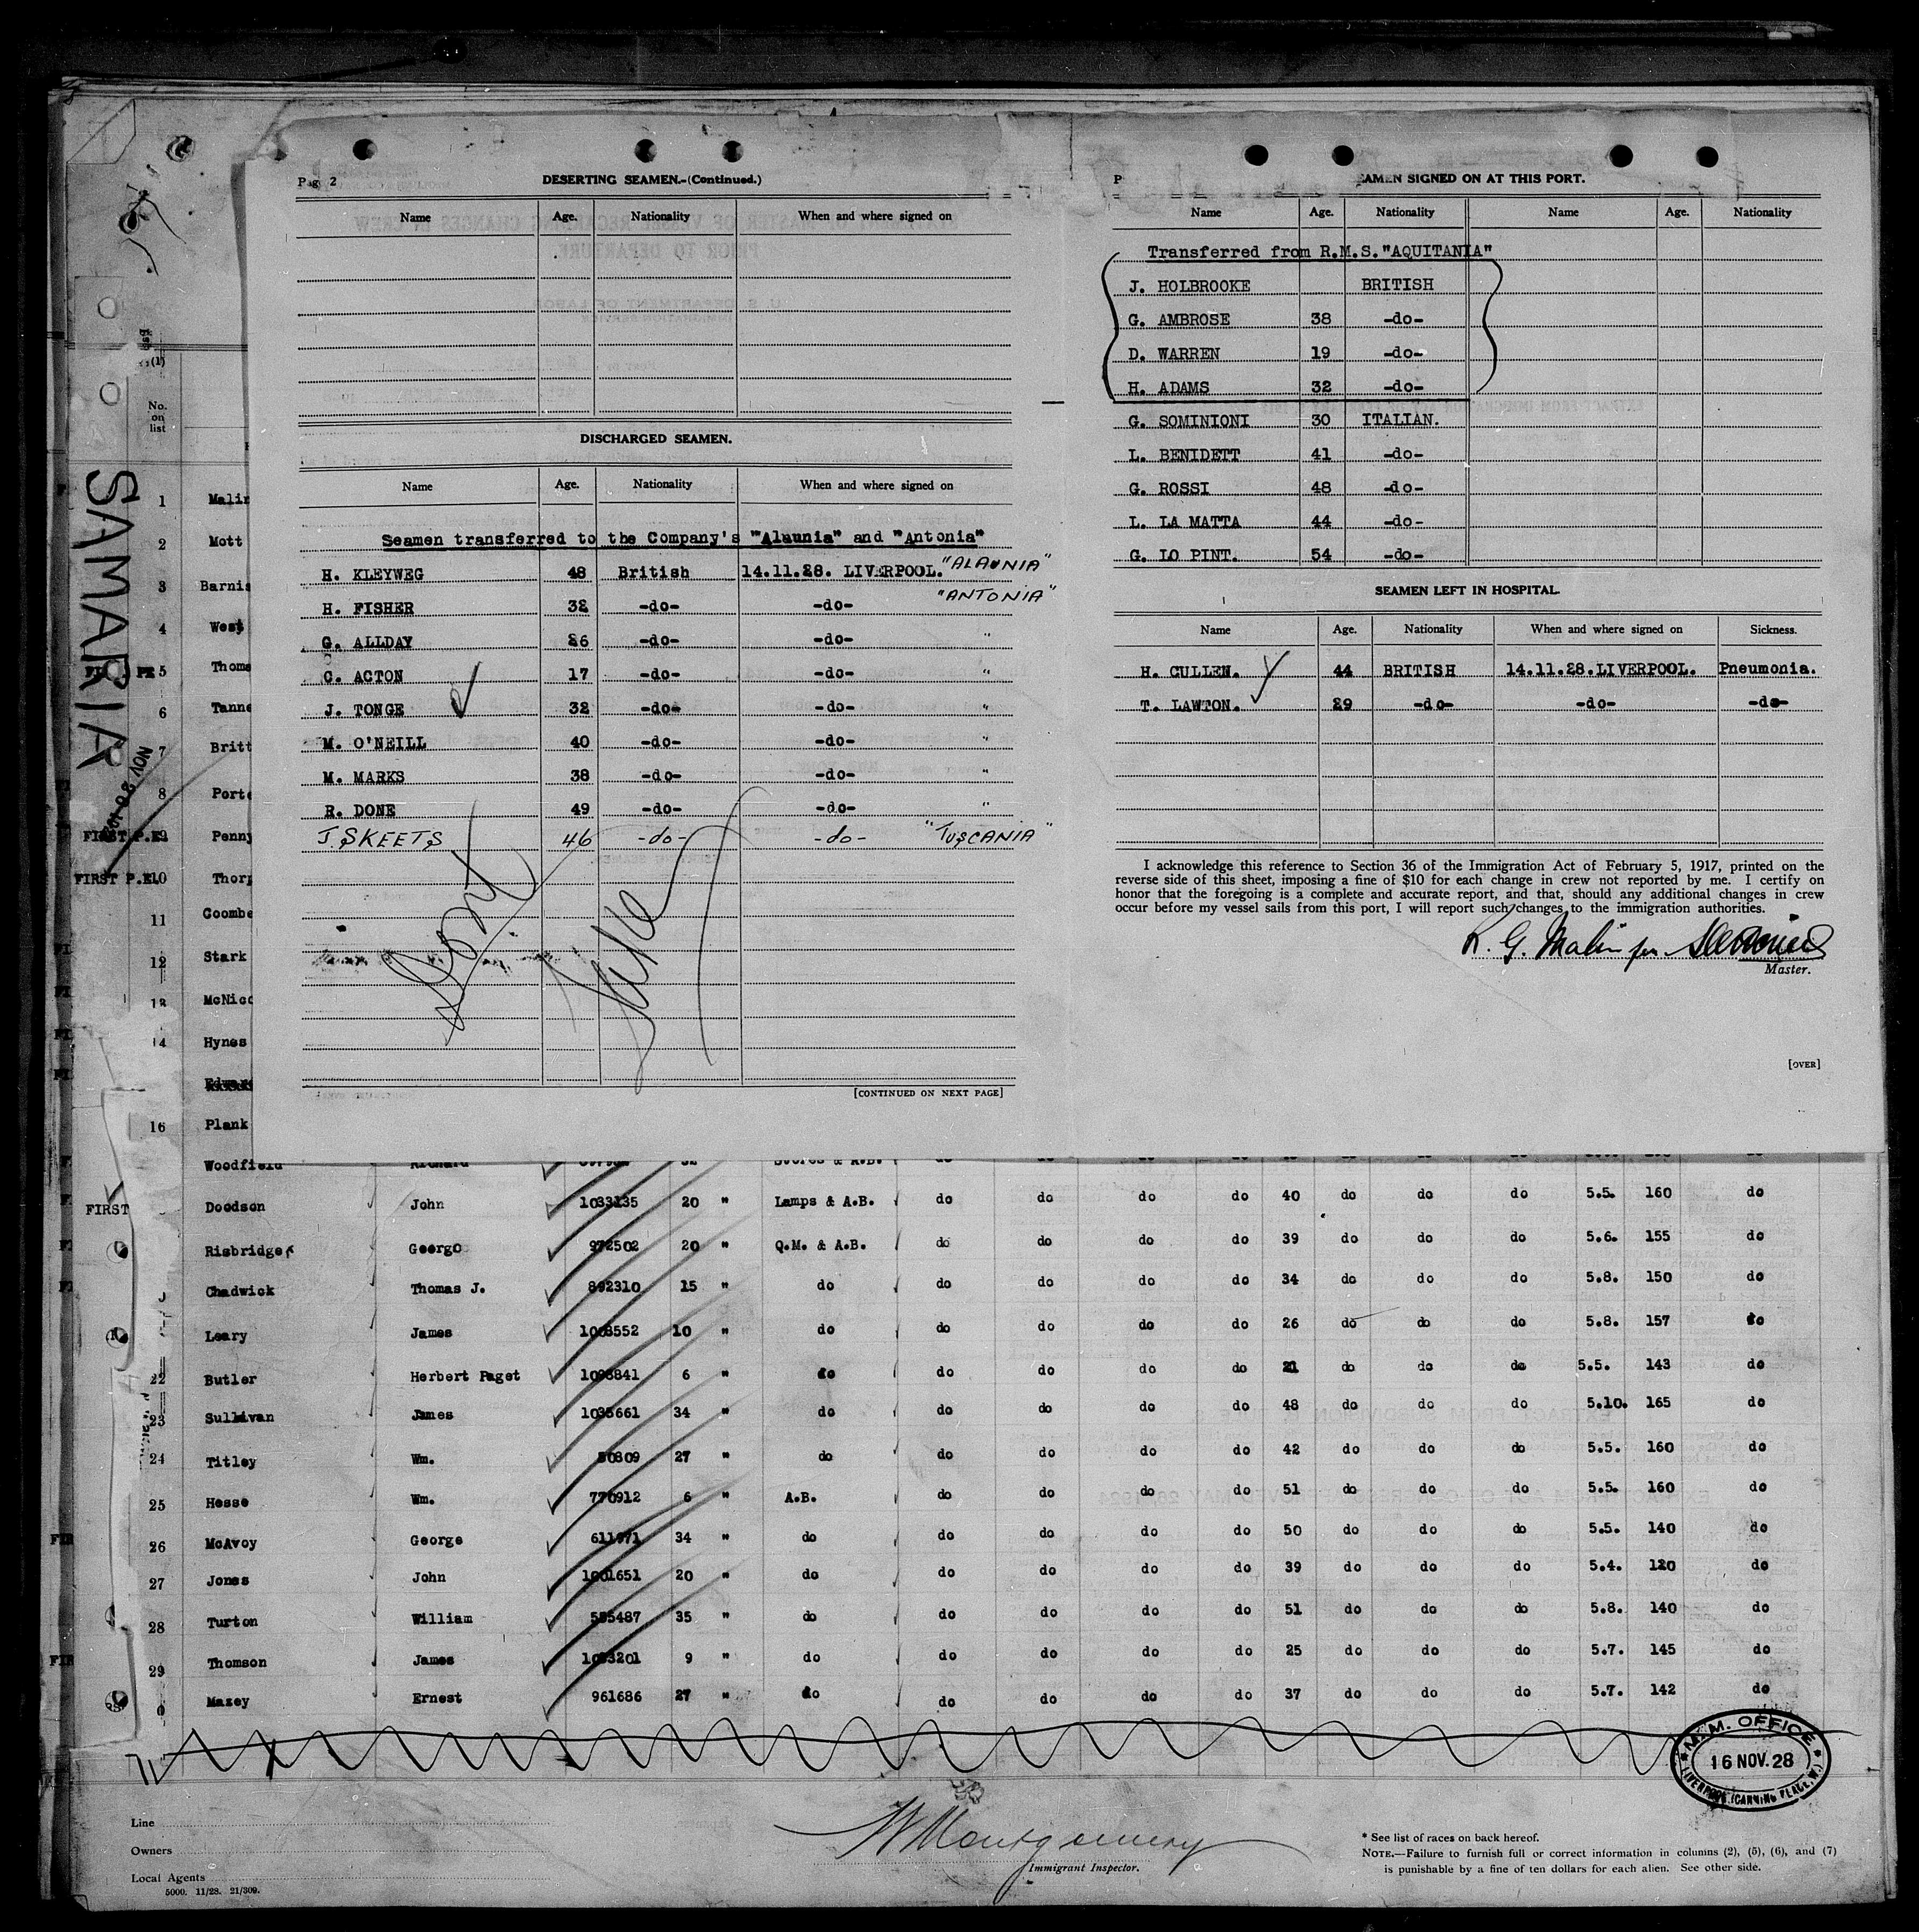 Page 2
DESERTING SEAMEN.-(Continued.)
Name Age. Nationality When and where signed on
DISCHARGED SEAMEN.
Name Age. Nationality When and where signed on
Seamen transferred to the Company's "Alaunia" and "Antonia"
H. KLEYWEG 48 British 14.11.28. LIVERPOOL. "ALAUNIA"
"ANTONIA"
H. FISHER 32 -do- -do-
G. ALLDAY 26 -do- -do- "
C. ACTON 17 -do- -do- "
J. TONGE 32 -do- -do- "
M. O'NEILL 40 -do- -do- "
M. MARKS 38 -do- -do- "
R. DONE 49 -do- -do- "
J. SKEETS 46 -do- -do- "TUSCANIA"
Dont
Take
[CONTINUED ON NEXT PAGE]
P
EAMEN SIGNED ON AT THIS PORT.
Name Age. Nationality Name Age. Nationality
Transferred from R.M.S. "AQUITANIA"
J. HOLBROOKE BRITISH
G. AMBROSE 38 -do-
D. WARREN 19 -do-
H. ADAMS 32 -do-
G. SOMINIONI 30 ITALIAN.
L. BENIDETT 41 -do-
G. ROSSI 48 -do-
L. LA MATTA 44 -do-
G. LO PINT. 54 -do-
SEAMEN LEFT IN HOSPITAL.
Name Age. Nationality When and where signed on Sickness.
H. CULLEN. 44 BRITISH 14.11.28.LIVERPOOL. Pneumonia.
T. LAWTON. 29 -do- -do- -do-
I acknowledge this reference to Section 36 of the Immigration Act of February 5, 1917, printed on the
reverse side of this sheet, imposing a fine of $10 for each change in crew not reported by me. I certify on
honor that the foregoing is a complete and accurate report, and that, should any additional changes in crew
occur before my vessel sails from this port, I will report such changes to the immigration authorities.
R. G. Malin for
Master.
[OVER]
SAMARIA
NOV 30 192
(1)
No.
on
list
1 Malin
2 Mott
3 Barnis
4 West
5 Thoma
6 Tanne
7 Britt
8 Porte
FIRST P.E. 9 Penny
FIRST P.E. 10 Thorp
11 Coombe
12 Stark
13 McNico
14 Hynes
Edward
16 Plank
Woodfield Richard 32 " Stores & A.B. do
FIRST Doodson John 1033135 20 " Lamps & A.B. do do do do 40 do do do 5.5. 160 do
Risbridger George 972502 20 " Q.M. & A.B. do do do do 39 do do do 5.6. 155 do
Chadwick Thomas J. 892310 15 " do do do do do 34 do do do 5.8. 150 do
Leary James 1008552 10 " do do do do do 26 do do do 5.8. 157 do
22 Butler Herbert Paget 1098841 6 " do do do do do 21 do do do 5.5. 143 do
23 Sullivan James 1035661 34 " do do do do do 48 do do do 5.10. 165 do
24 Titley Wm. 80809 27 " do do do do do 42 do do do 5.5. 160 do
25 Hesse Wm. 770912 6 " A.B. do do do do 51 do do do 5.5. 160 do
26 McAvoy George 611971 34 " do do do do do 50 do do do 5.5. 140 do
27 Jones John 1001651 20 " do do do do do 39 do do do 5.4. 120 do
28 Turton William 555487 35 " do do do do do 51 do do do 5.8. 140 do
29 Thomson James 1093201 9 " do do do do do 25 do do do 5.7. 145 do
0 Mazey Ernest 961686 27 " do do do do do 37 do do do 5.7. 142 do
M.M. OFFICE
16 NOV. 28
LIVERPOOL (CANNING PLACE, W.)
Line
Owners
Local Agents
5000. 11/28. 21/309.
W Montgomery
Immigrant Inspector.
* See list of races on back hereof.
NOTE.—Failure to furnish full or correct information in columns (2), (5), (6), and (7)
is punishable by a fine of ten dollars for each alien. See other side.